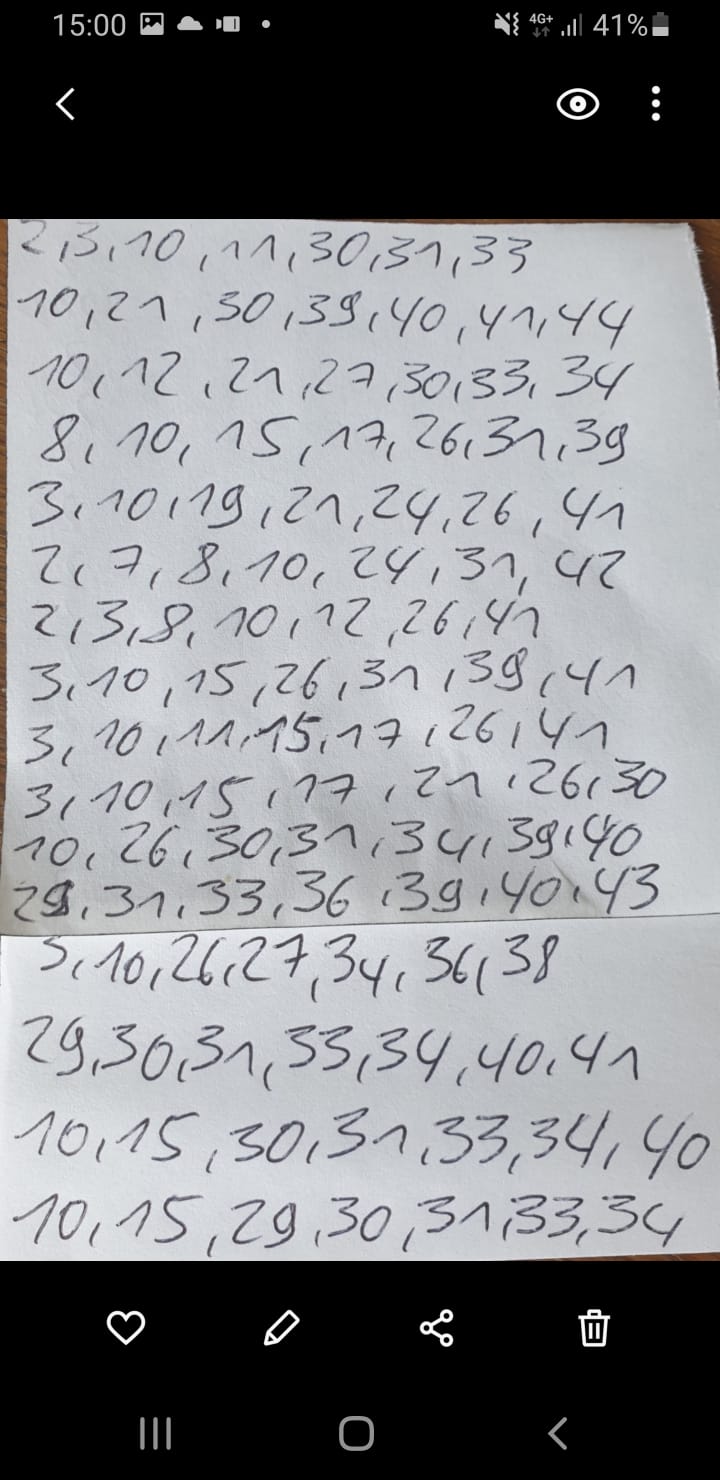 15:00 4G+ 41%
2,3,10,11,30,31,33
10,21,30,39,40,41,44
10,12,21,27,30,33,34
8,10,15,17,26,31,39
3,10,19,21,24,26,41
2,7,8,10,24,31,42
2,3,8,10,12,26,41
3,10,15,26,31,39,41
3,10,11,15,17,26,41
3,10,15,17,21,26,30
10,26,30,31,34,39,40
29,31,33,36,39,40,43
3,10,26,27,34,36,38
29,30,31,33,34,40,41
10,15,30,31,33,34,40
10,15,29,30,31,33,34